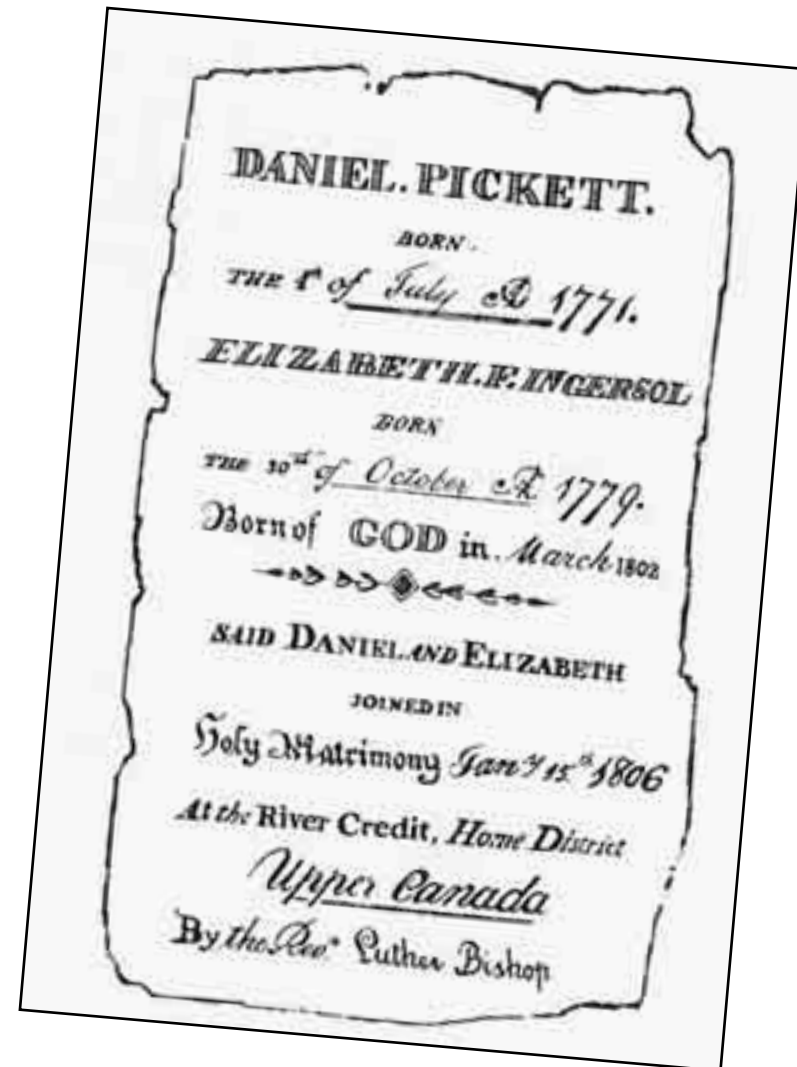 DANIEL. PICKETT.
BORN.
THE 1st of July AD 1771.
ELIZABETH. F. INGERSOL
BORN
THE 10th of October AD 1779.
Born of GOD in. March 1802
SAID DANIEL AND ELIZABETH
JOINED IN
Holy Matrimony Jany 15th 1806
At the River Credit, Home District
Upper Canada
By the Revd Luther Bishop